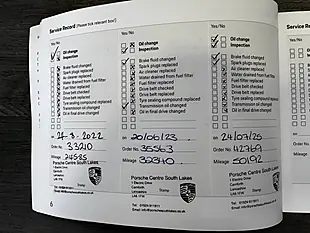 Service Record (Please tick relevant box)
Yes/No
Oil change
Inspection
Brake fluid changed
Spark plugs replaced
Air cleaner replaced
Water drained from fuel filter
Fuel filter replaced
Drive belt checked
Drive belt replaced
Tyre sealing compound replaced
Transmission oil changed
Oil in final drive changed
on 24-8-2022
Order No. 33210
Mileage 24585
Porsche Centre South Lakes
1 Electric Drive
Carnforth
Lancashire
Stamp
Yes/No
Oil change
Inspection
Brake fluid changed
Spark plugs replaced
Air cleaner replaced
Water drained from fuel filter
Fuel filter replaced
Drive belt checked
Drive belt replaced
Tyre sealing compound replaced
Transmission oil changed
Oil in final drive changed
on 20/06/23
Order No. 35563
Mileage 32340
Porsche Centre South Lakes
1 Electric Drive
Carnforth
Lancashire
Stamp
Yes/No
Oil change
Inspection
Brake fluid changed
Spark plugs replaced
Air cleaner replaced
Water drained from fuel filter
Fuel filter replaced
Drive belt checked
Drive belt replaced
Tyre sealing compound replaced
Transmission oil changed
Oil in final drive changed
on 24/07/25
Order No. 42769
Mileage 50192
Porsche Centre South Lakes
1 Electric Drive
Carnforth
Lancashire
Stamp
6
Service Rec
Yes/No